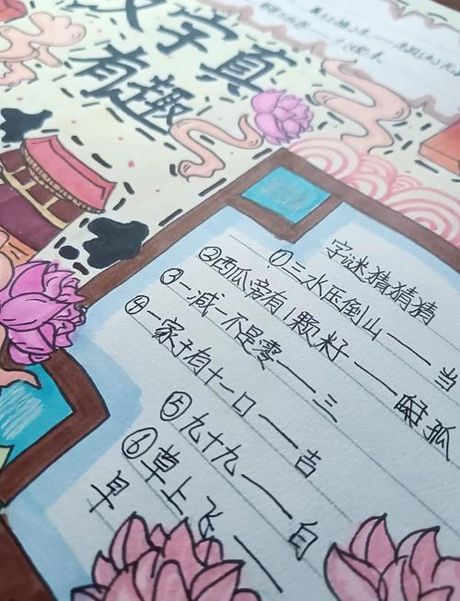 汉字真
有趣
字谜猜猜猜
①三水压倒山——当
②西瓜旁有1颗籽——孤
③一减一不是零——三
④一家子有十一口——吉
⑤九十九——白
⑥草上飞——
早